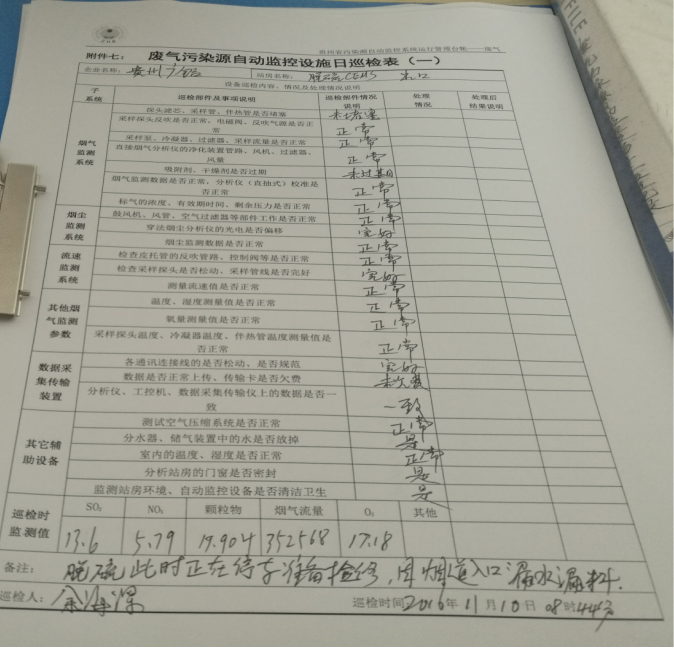 贵州省污染源自动监控系统运行管理台帐——废气
附件七： 废气污染源自动监控设施日巡检表（一）
企业名称： 贵州 站房名称： 脱硫CEMS
设备巡检内容、情况及处理情况说明
子系统 巡检部件及事项说明 巡检部件情况说明 处理情况 处理后结果说明
烟气监测系统
探头滤芯、采样管、伴热管是否堵塞 未堵塞
采样探头反吹是否正常、电磁阀、反吹气源是否正常 正常
采样泵、冷凝器、过滤器、采样流量是否正常 正常
直接烟气分析仪的净化装置管路、风机、过滤器、风量 正常
吸附剂、干燥剂是否过期 未过期
烟气监测数据是否正常，分析仪（直抽式）校准是否正常 正常
标气的浓度、有效期时间、剩余压力是否正常 正常
烟尘监测系统
鼓风机、风管、空气过滤器等部件工作是否正常 正常
穿法烟尘分析仪的光电是否偏移 完好
烟尘监测数据是否正常 正常
流速监测系统
检查皮托管的反吹管路、控制阀等是否正常 正常
检查采样探头是否松动、采样管线是否完好 完好
测量流速值是否正常 正常
其他烟气监测参数
温度、湿度测量值是否正常 正常
氧量测量值是否正常 正常
采样探头温度、冷凝器温度、伴热管温度测量值是否正常 正常
数据采集传输装置
各通讯连接线的是否松动、是否规范 完好
数据是否正常上传、传输卡是否欠费 未欠费
分析仪、工控机、数据采集传输仪上的数据是否一致 一致
其它辅助设备
测试空气压缩系统是否正常 正常
分水器、储气装置中的水是否放掉 是
室内的温度、湿度是否正常 正常
分析站房的门窗是否密封 是
监测站房环境、自动监控设备是否清洁卫生 是
巡检时监测值
SO₂ NOₓ 颗粒物 烟气流量 O₂ 其他
13.6 5.79 19.904 352568 17.18
备注： 脱硫此时正在停车准备检修，因烟道入口漏水漏料.
巡检人：
巡检时间：2016年11月10日08时44分